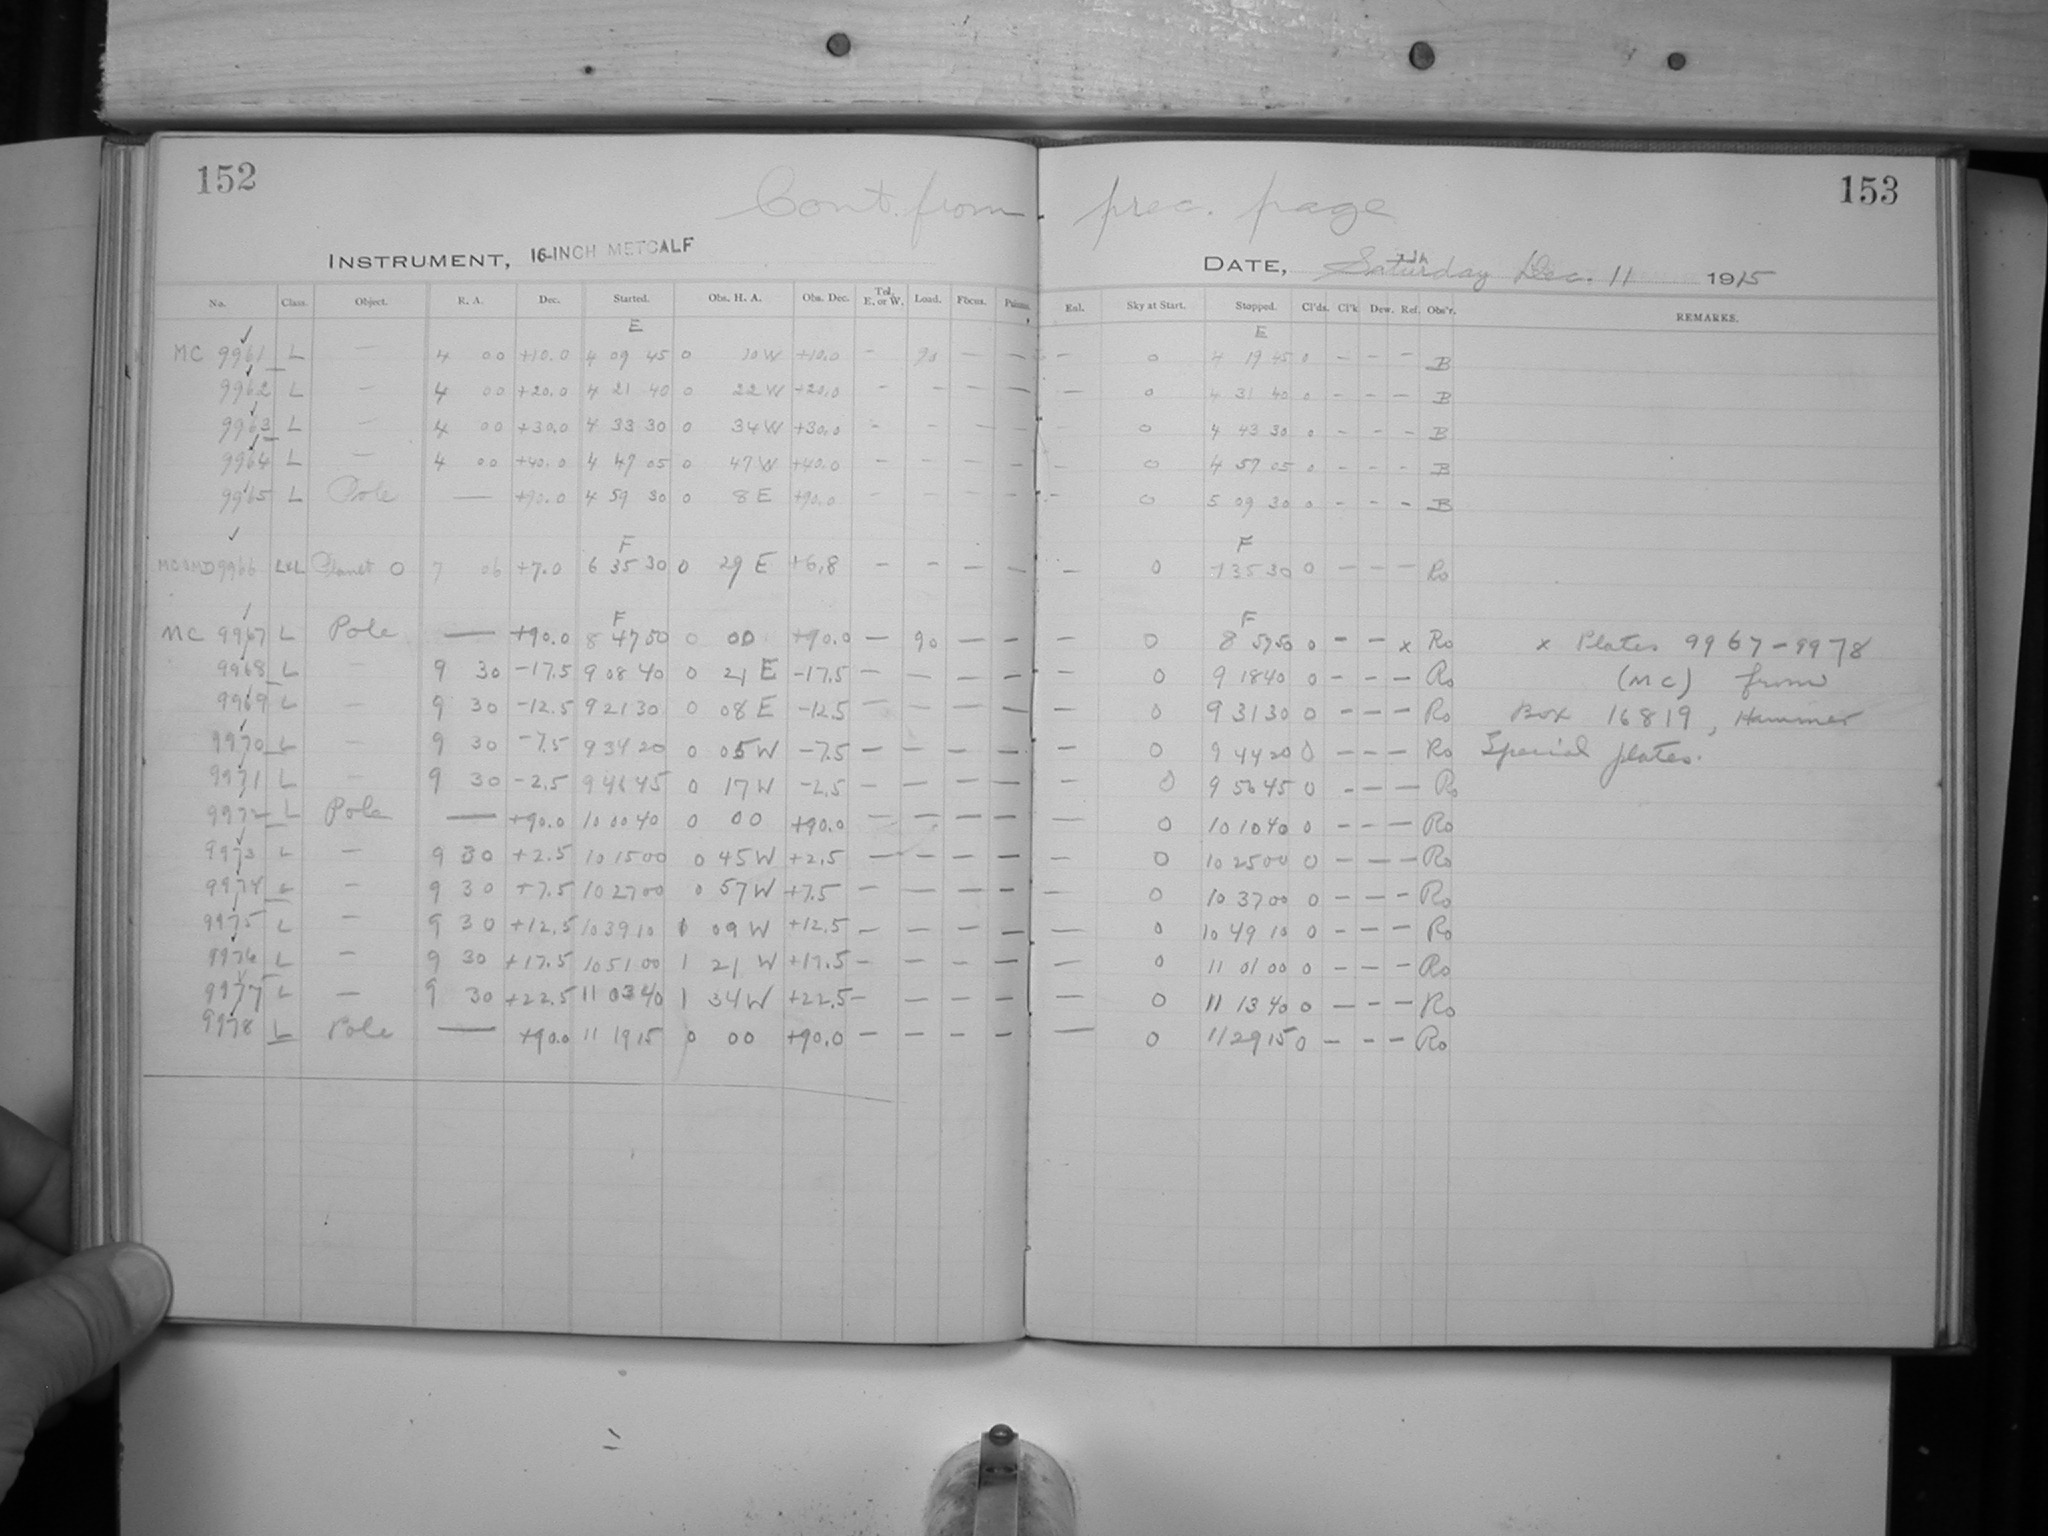 152
153
Cont. from prec. page
INSTRUMENT, 16-INCH METCALF
DATE, Saturday Dec. 11 1915
No. Class. Object. R. A. Dec. Started. Obs. H. A. Obs. Dec. Tel. E. or W. Load. Focus. Enl. Sky at Start. Stopped. Cl'ds. Cl'k Dew. Ref. Obs'r. REMARKS.
E E
MC 9961 L — 4 00 +10.0 4 09 45 0 10 W +10.0 — 90 — — — 0 4 19 45 0 — — — B
9962 L — 4 00 +20.0 4 21 40 0 22 W +20.0 — — — — — 0 4 31 40 0 — — — B
9963 L — 4 00 +30.0 4 33 30 0 34 W +30.0 — — — — — 0 4 43 30 0 — — — B
9964 L — 4 00 +40.0 4 47 05 0 47 W +40.0 — — — — — 0 4 57 05 0 — — — B
9965 L Pole — +90.0 4 59 30 0 8 E +90.0 — — — — — 0 5 09 30 0 — — — B
F F
9966 L&L Planet O 7 06 +7.0 6 35 30 0 29 E +6.8 — — — — — 0 7 35 30 0 — — — Ro
F F
MC 9967 L Pole — +90.0 8 47 50 0 00 +90.0 — 90 — — — 0 8 57 50 0 — — x Ro x Plates 9967-9978
9968 L — 9 30 -17.5 9 08 40 0 21 E -17.5 — — — — — 0 9 18 40 0 — — — Ro (MC) from
9969 L — 9 30 -12.5 9 21 30 0 08 E -12.5 — — — — — 0 9 31 30 0 — — — Ro Box 16819, Hammer
9970 L — 9 30 -7.5 9 34 20 0 05 W -7.5 — — — — — 0 9 44 20 0 — — — Ro Special plates.
9971 L — 9 30 -2.5 9 46 45 0 17 W -2.5 — — — — — 0 9 56 45 0 — — — Ro
9972 L Pole — +90.0 10 00 40 0 00 +90.0 — — — — — 0 10 10 40 0 — — — Ro
9973 L — 9 30 +2.5 10 15 00 0 45 W +2.5 — — — — — 0 10 25 00 0 — — — Ro
9974 L — 9 30 +7.5 10 27 00 0 57 W +7.5 — — — — — 0 10 37 00 0 — — — Ro
9975 L — 9 30 +12.5 10 39 10 1 09 W +12.5 — — — — — 0 10 49 10 0 — — — Ro
9976 L — 9 30 +17.5 10 51 00 1 21 W +17.5 — — — — — 0 11 01 00 0 — — — Ro
9977 L — 9 30 +22.5 11 03 40 1 34 W +22.5 — — — — — 0 11 13 40 0 — — — Ro
9978 L Pole — +90.0 11 19 15 0 00 +90.0 — — — — — 0 11 29 15 0 — — — Ro